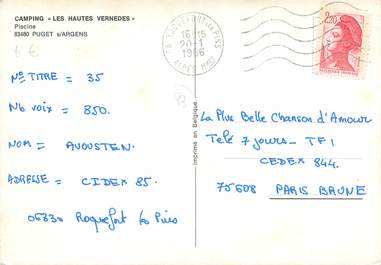 CAMPING « LES HAUTES VERNEDES »
Piscine
83480 PUGET s/ARGENS
6 €
06 ROQUEFORT-les-PINS
16-15
20-1
1986
ALPES MMES
2,20
Nº TITRE = 35
Nb voix = 850.
NOM = AVOUSTEN.
ADRESSE = CIDEX 85.
06330 Roquefort les Pins
Imprimé en Belgique
83
La Plus Belle Chanson d'Amour
Télé 7 jours - TF1
CEDEX 844.
75608 PARIS BRUNE